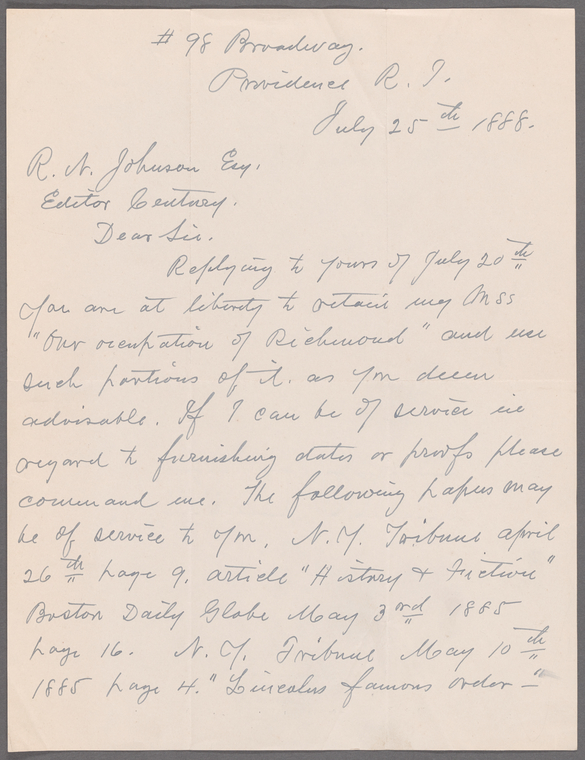 # 98 Broadway.
Providence R. I.
July 25th 1888.
R. N. Johnson Esq.
Editor Century.
Dear Sir.
Replying to yours of July 20th
you are at liberty to retain my Mss
"Our occupation of Richmond" and use
such portions of it. as you deem
advisable. If I can be of service in
regard to furnishing dates or proofs please
command me. The following papers may
be of service to you, N.Y. Tribune april
26th page 9, article "History & Fiction"
Boston Daily Globe May 3rd 1885
page 16. N.Y. Tribune May 10th
1885 page 4. "Lincolns famous order –"